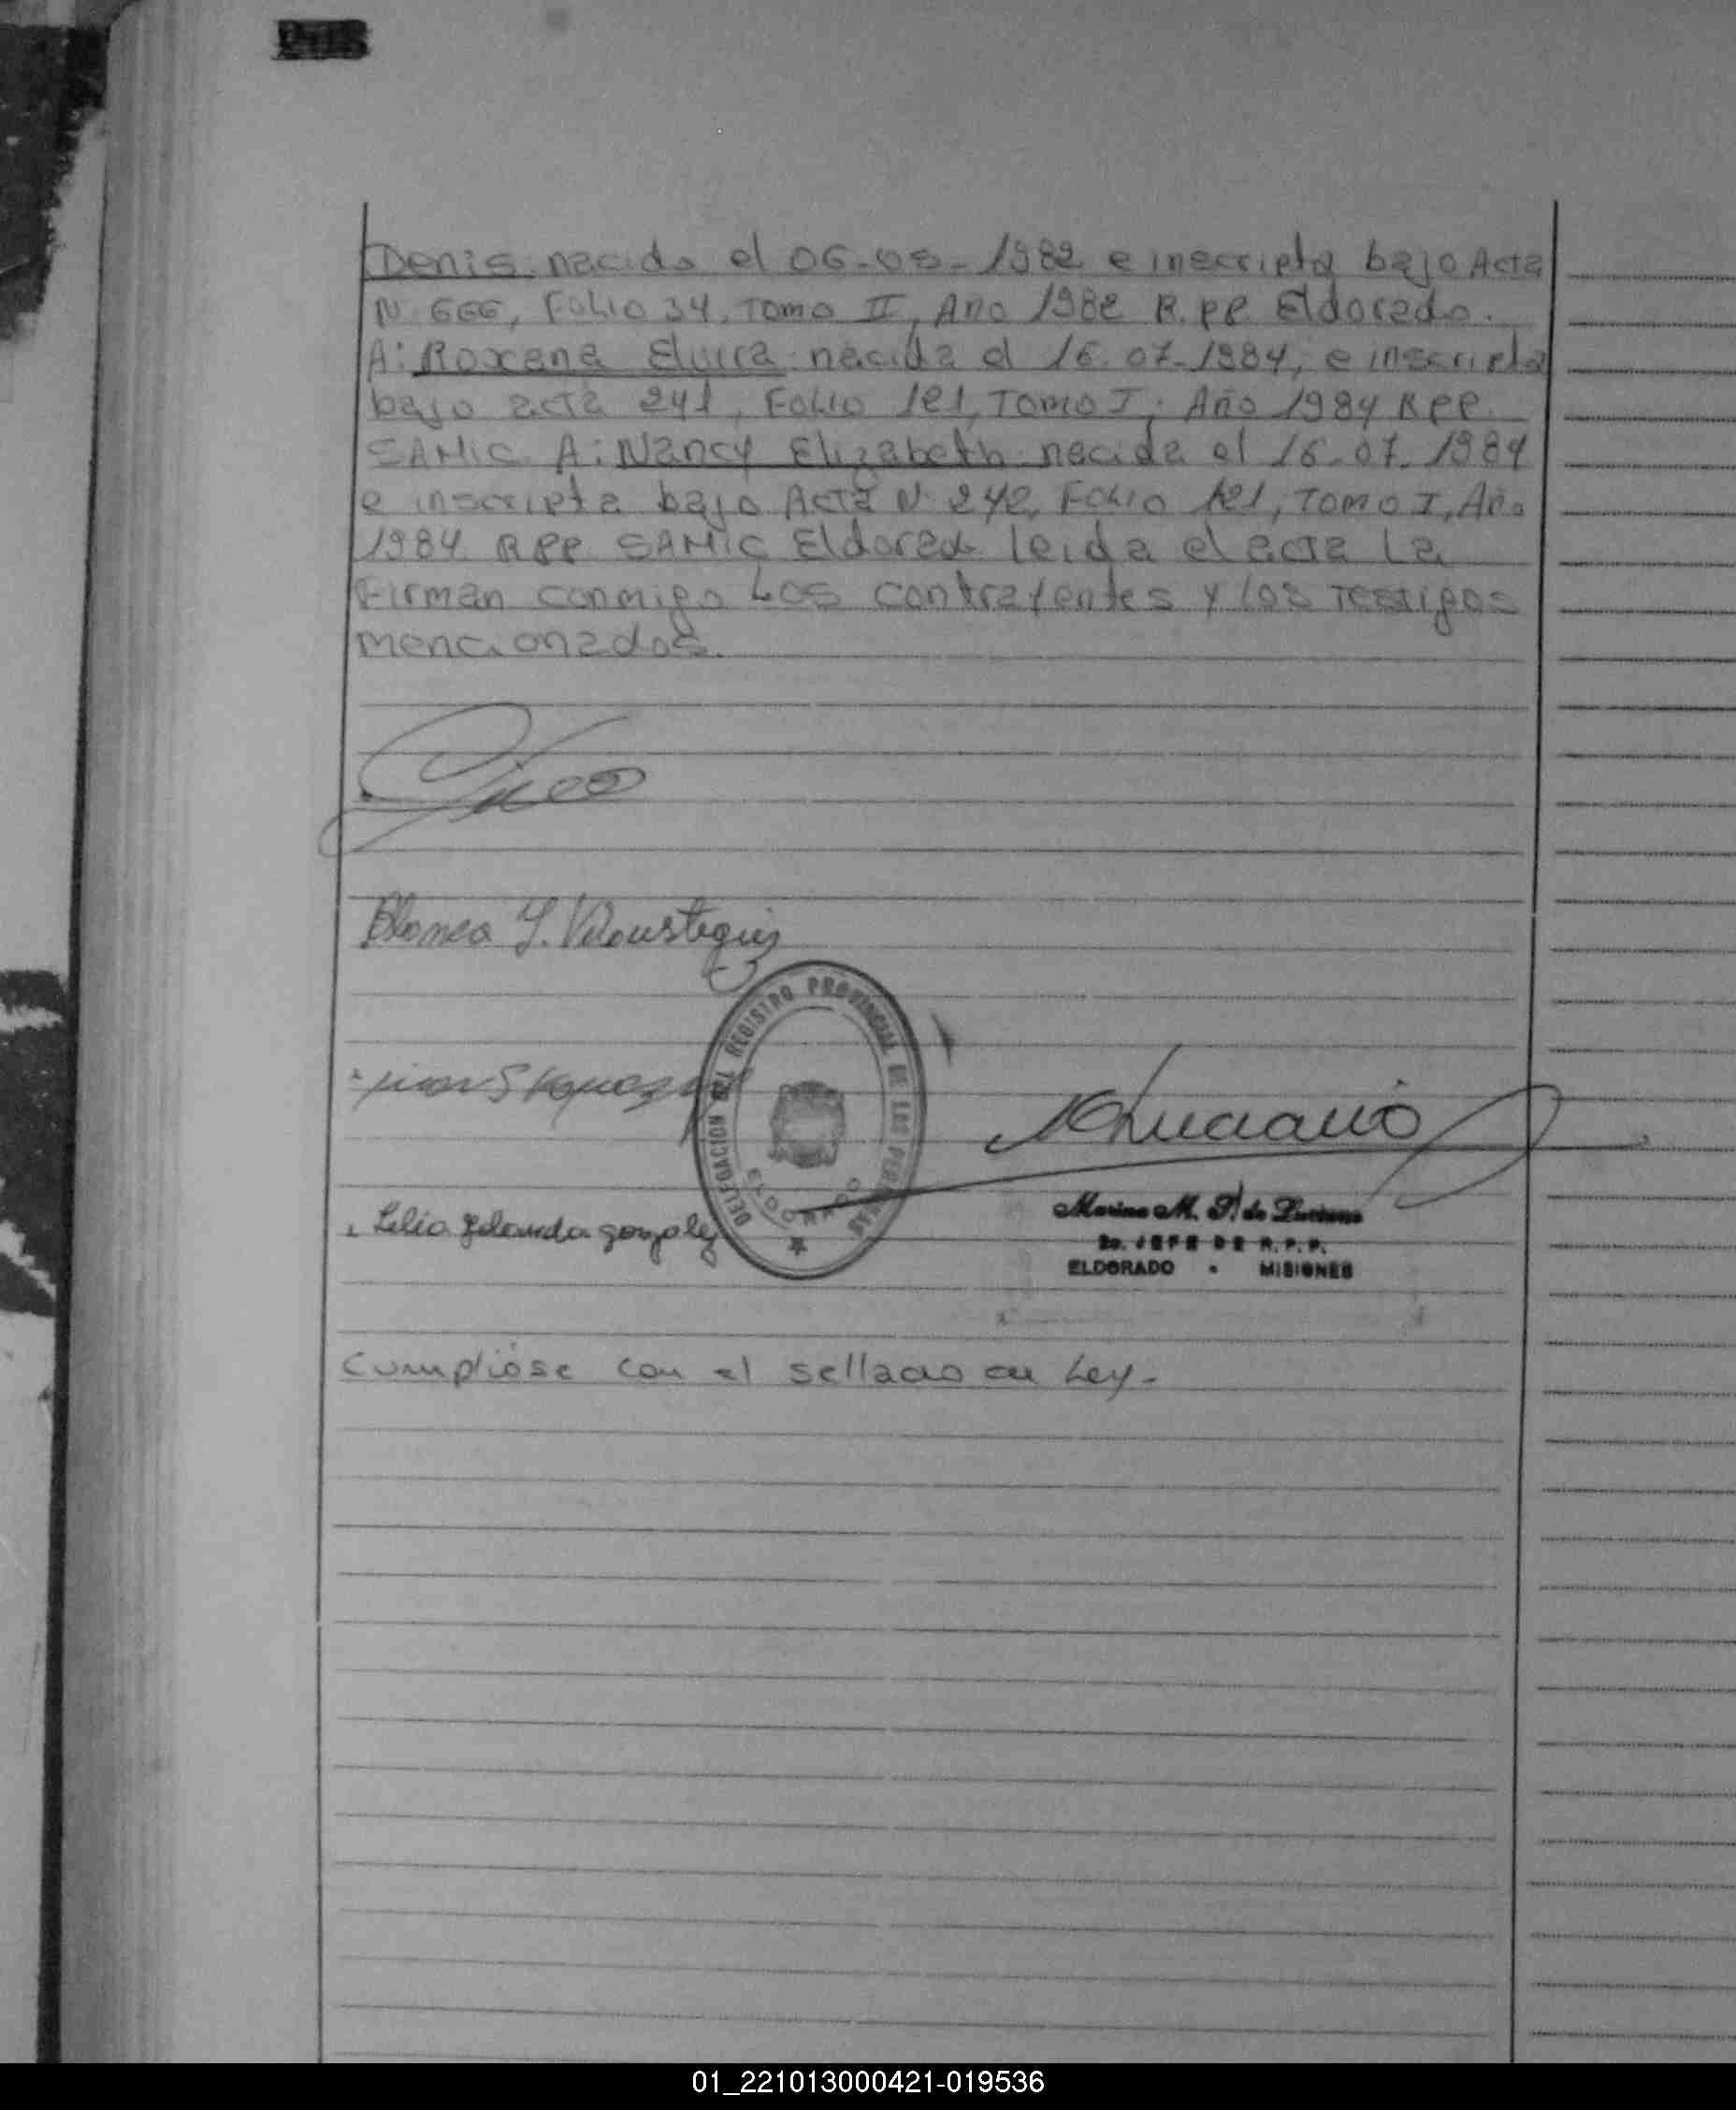 Denis nacido el 06-05-1982 e inscripta bajo Acta
N. 666, Folio 34, Tomo II, Año 1982 R.PP. Eldorado.
A: Roxana Elvira nacida el 16.07-1984, e inscripta
bajo acta 241, Folio 121, Tomo I, Año 1984 RPP.
SAMIC. A: Nancy Elizabeth nacida el 16-07-1984
e inscripta bajo Acta N. 242, Folio 121, Tomo I, Año
1984 RPP SAMIC Eldorado leida el acta la
Firman conmigo Los contrayentes y los testigos
mencionados.
Blanca Y.
DELEGACION DEL REGISTRO PROVINCIAL DE LAS PERSONAS
ELDORADO
Luciano
Lelia Yolanda gonzalez
Marina M. P. de Luciano
2o. JEFE DE R.P.P.
ELDORADO - MISIONES
Cumplióse con el sellado de Ley-
01_221013000421-019536